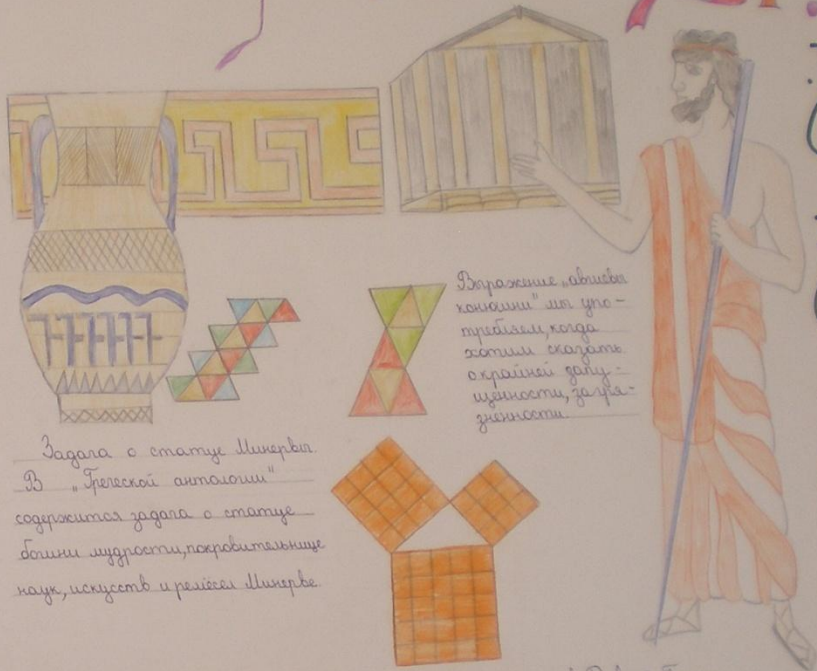 Выражение „авгиевы
конюшни" мы упо-
требляем, когда
хотим сказать
о крайней запу-
щенности, загря-
зненности
Задача о статуе Минервы.
В „Греческой антологии"
содержится задача о статуе
богини мудрости, покровительнице
наук, искусств и ремёсел Минерве.